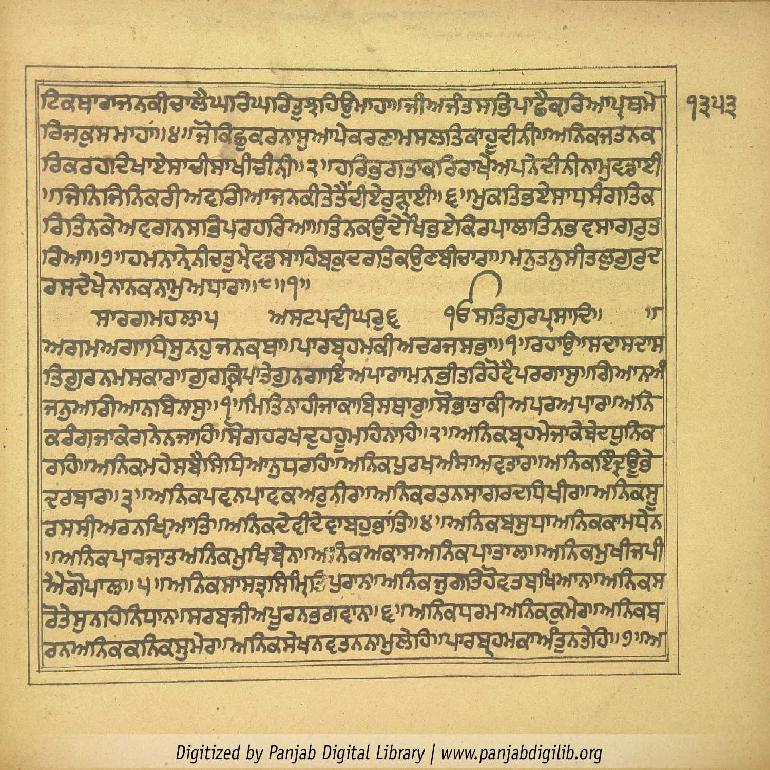 ਟਿਕਥਾਰਾਜਨਕੀਚਾਲੈਘਾਰਿਘਾਰਿਤੁਝਹਿਉਮਾਹਾ॥ਜੀਅਜੰਤਸਭਿਪਾਛੈਕਰਿਆਪ੍ਰਥਮੇ ੧੩੫੩
ਰਿਜਕੁਸਮਾਹਾ॥੪॥ਜੋਕਿਛੁਕਰਨਾਸੁਆਪੇਕਰਣਾਮਸਲਤਿਕਾਹੂਦੀਨੀ॥ਅਨਿਕਜਤਨਕ
ਰਿਕਰਹਦਿਖਾਏਸਾਚੀਸਾਖੀਚੀਨੀ॥੨॥ਹਰਿਭਗਤਾਕਰਿਰਾਖੇਅਪਨੇਦੀਨੀਨਾਮੁਵਡਾਈ
॥ਜਿਨਿਜਿਨਿਕਰੀਅਵਗਿਆਜਨਕੀਤੇਤੈਂਦੀਏਰੁੜ੍ਹਾਈ॥੬॥ਮੁਕਤਿਭਏਸਾਧਸੰਗਤਿਕ
ਰਿਤਿਨਕੇਅਵਗਨਸਭਿਪਰਹਰਿਆ॥ਤਿਨਕਉਦੇਖਿਭਏਕਿਰਪਾਲਾਤਿਨਭਵਸਾਗਰੁਤ
ਰਿਆ॥੭॥ਹਮਨਾਨੇਨੀਚਤੁਮੇਵਡਸਾਹਿਬਕੁਦਰਤਿਕਉਣਬੀਚਾਰਾ॥ਮਨੁਤਨੁਸੀਤਲੁਗੁਰਦ
ਰਸਦੇਖੇਨਾਨਕਨਾਮੁਅਧਾਰਾ॥੮॥੧॥
ਸਾਰਗਮਹਲਾ੫ ਅਸਟਪਦੀਘਰੁ੬ ੴਸਤਿਗੁਰਪ੍ਰਸਾਦਿ॥ ॥
ਅਗਮਅਗਾਧਿਸੁਨਹੁਜਨਕਥਾ॥ਪਾਰਬ੍ਰਹਮਕੀਅਚਰਜਸਭਾ॥੧॥ਰਹਾਉ॥ਸਦਾਸਦਾਸ
ਤਿਗੁਰਨਮਸਕਾਰ॥ਗੁਰਕ੍ਰਿਪਾਤੇਗੁਨਗਾਇਅਪਾਰ॥ਮਨਭੀਤਰਿਹੋਵੈਪਰਗਾਸੁ॥ਗਿਆਨਅੰ
ਜਨੁਅਗਿਆਨਬਿਨਾਸੁ॥੧॥ਮਿਤਿਨਾਹੀਜਾਕਾਬਿਸਥਾਰੁ॥ਸੋਭਾਤਾਕੀਅਪਰਅਪਾਰ॥ਅਨਿ
ਕਰੰਗਜਾਕੇਗਨੇਨਜਾਹਿ॥ਸੋਗਹਰਖਦੁਹਹੂਮਹਿਨਾਹਿ॥੨॥ਅਨਿਕਬ੍ਰਹਮੇਜਾਕੇਬੇਦਧੁਨਿਕ
ਰਹਿ॥ਅਨਿਕਮਹੇਸਬੈਸਿਧਿਆਨੁਧਰਹਿ॥ਅਨਿਕਪੁਰਖਅੰਸਾਅਵਤਾਰ॥ਅਨਿਕਇੰਦ੍ਰਊਭੇ
ਦਰਬਾਰ॥੩॥ਅਨਿਕਪਵਨਪਾਵਕਅਰੁਨੀਰ॥ਅਨਿਕਰਤਨਸਾਗਰਦਧਿਖੀਰ॥ਅਨਿਕਸੂ
ਰਸਸੀਅਰਨਖਿਆਤਿ॥ਅਨਿਕਦੇਵੀਦੇਵਾਬਹੁਭਾਂਤਿ॥੪॥ਅਨਿਕਬਸੁਧਾਅਨਿਕਕਾਮਧੇਨ
॥ਅਨਿਕਪਾਰਜਾਤਅਨਿਕਮੁਖਿਬੇਨ॥ਅਨਿਕਅਕਾਸਅਨਿਕਪਾਤਾਲ॥ਅਨਿਕਮੁਖੀਜਪੀ
ਐਗੋਪਾਲ॥੫॥ਅਨਿਕਸਾਸਤ੍ਰਸਿਮ੍ਰਿਤਿਪੁਰਾਨ॥ਅਨਿਕਜੁਗਤਿਹੋਵਤਬਖਿਆਨ॥ਅਨਿਕਸ
ਰੋਤੇਸੁਨਹਿਨਿਧਾਨ॥ਸਰਬਜੀਅਪੂਰਨਭਗਵਾਨ॥੬॥ਅਨਿਕਧਰਮਅਨਿਕਕੁਮੇਰ॥ਅਨਿਕਬ
ਰਨਅਨਿਕਕਨਿਕਸੁਮੇਰ॥ਅਨਿਕਸੇਖਨਵਤਨਨਾਮੁਲੇਹਿ॥ਪਾਰਬ੍ਰਹਮਕਾਅੰਤੁਨਤੇਹਿ॥੭॥ਅ
Digitized by Panjab Digital Library | www.panjabdigilib.org